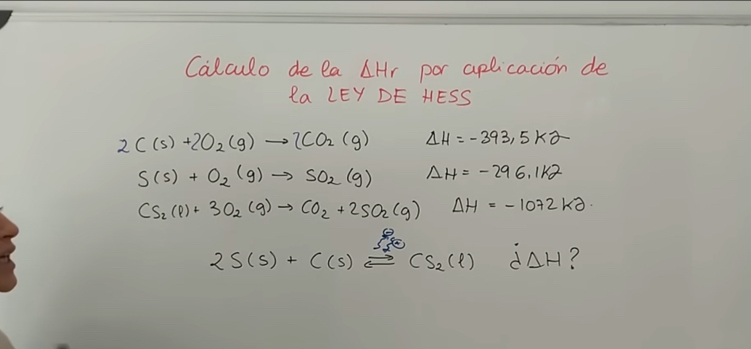 Cálculo de la ΔHr por aplicación de
la LEY DE HESS
2C(s) + 2O₂(g) → 2CO₂(g) ΔH = -393,5 KJ
S(s) + O₂(g) → SO₂(g) ΔH = -296,1 KJ
CS₂(l) + 3O₂(g) → CO₂ + 2SO₂(g) ΔH = -1072 KJ.
2S(s) + C(s) ⇌ CS₂(l) ¿ΔH?